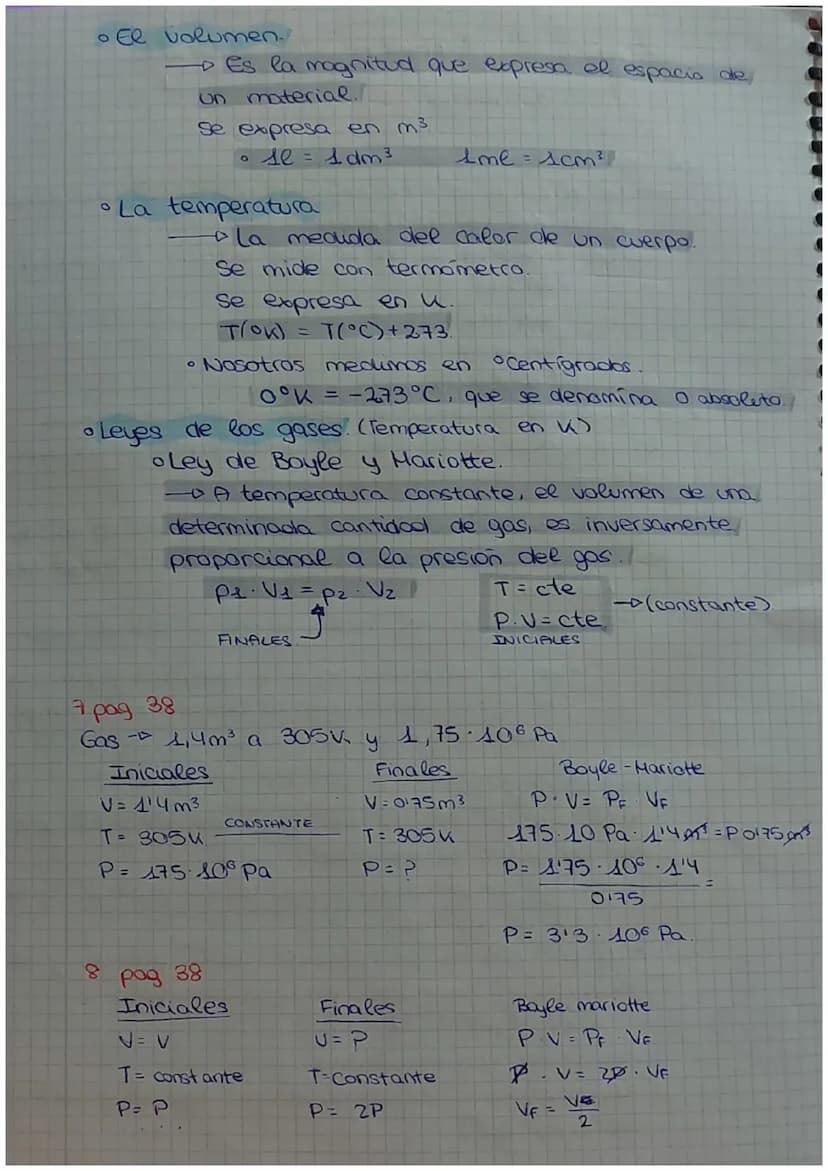 ◦ El volumen.
→ Es la magnitud que expresa el espacio de
un material.
Se expresa en m³
◦ 1l = 1dm³ 1ml = 1cm³
◦ La temperatura
→ La medida del calor de un cuerpo.
Se mide con termómetro.
Se expresa en K.
T(ºK) = T(ºC)+273.
◦ Nosotros medimos en ºcentígrados.
0ºK = -273ºC, que se denomina 0 absoluto.
◦ Leyes de los gases. (Temperatura en K)
◦ Ley de Boyle y Mariotte.
→ A temperatura constante, el volumen de una
determinada cantidad de gas, es inversamente
proporcional a la presión del gas.
p1 · V1 = p2 · V2 T = cte
P.V = cte → (constante)
FINALES INICIALES
7 pag 38
Gas → 1,4m³ a 305K y 1,75 · 10⁶ Pa
Iniciales Finales Boyle-Mariotte
V = 1'4m³ V = 0'75m³ P · V = PF VF
T = 305K CONSTANTE T = 305K 175·10 Pa · 1'4 m³ = P 0'75 m³
P = 175·10⁶ Pa P = ? P = 1'75 · 10⁶ · 1'4 =
0'75
P = 3'3 · 10⁶ Pa.
8 pag 38
Iniciales Finales Boyle mariotte
V = V V = ? P V = PF VF
T = constante T = Constante P · V = 2P · VF
P = P P = 2P VF = V
2